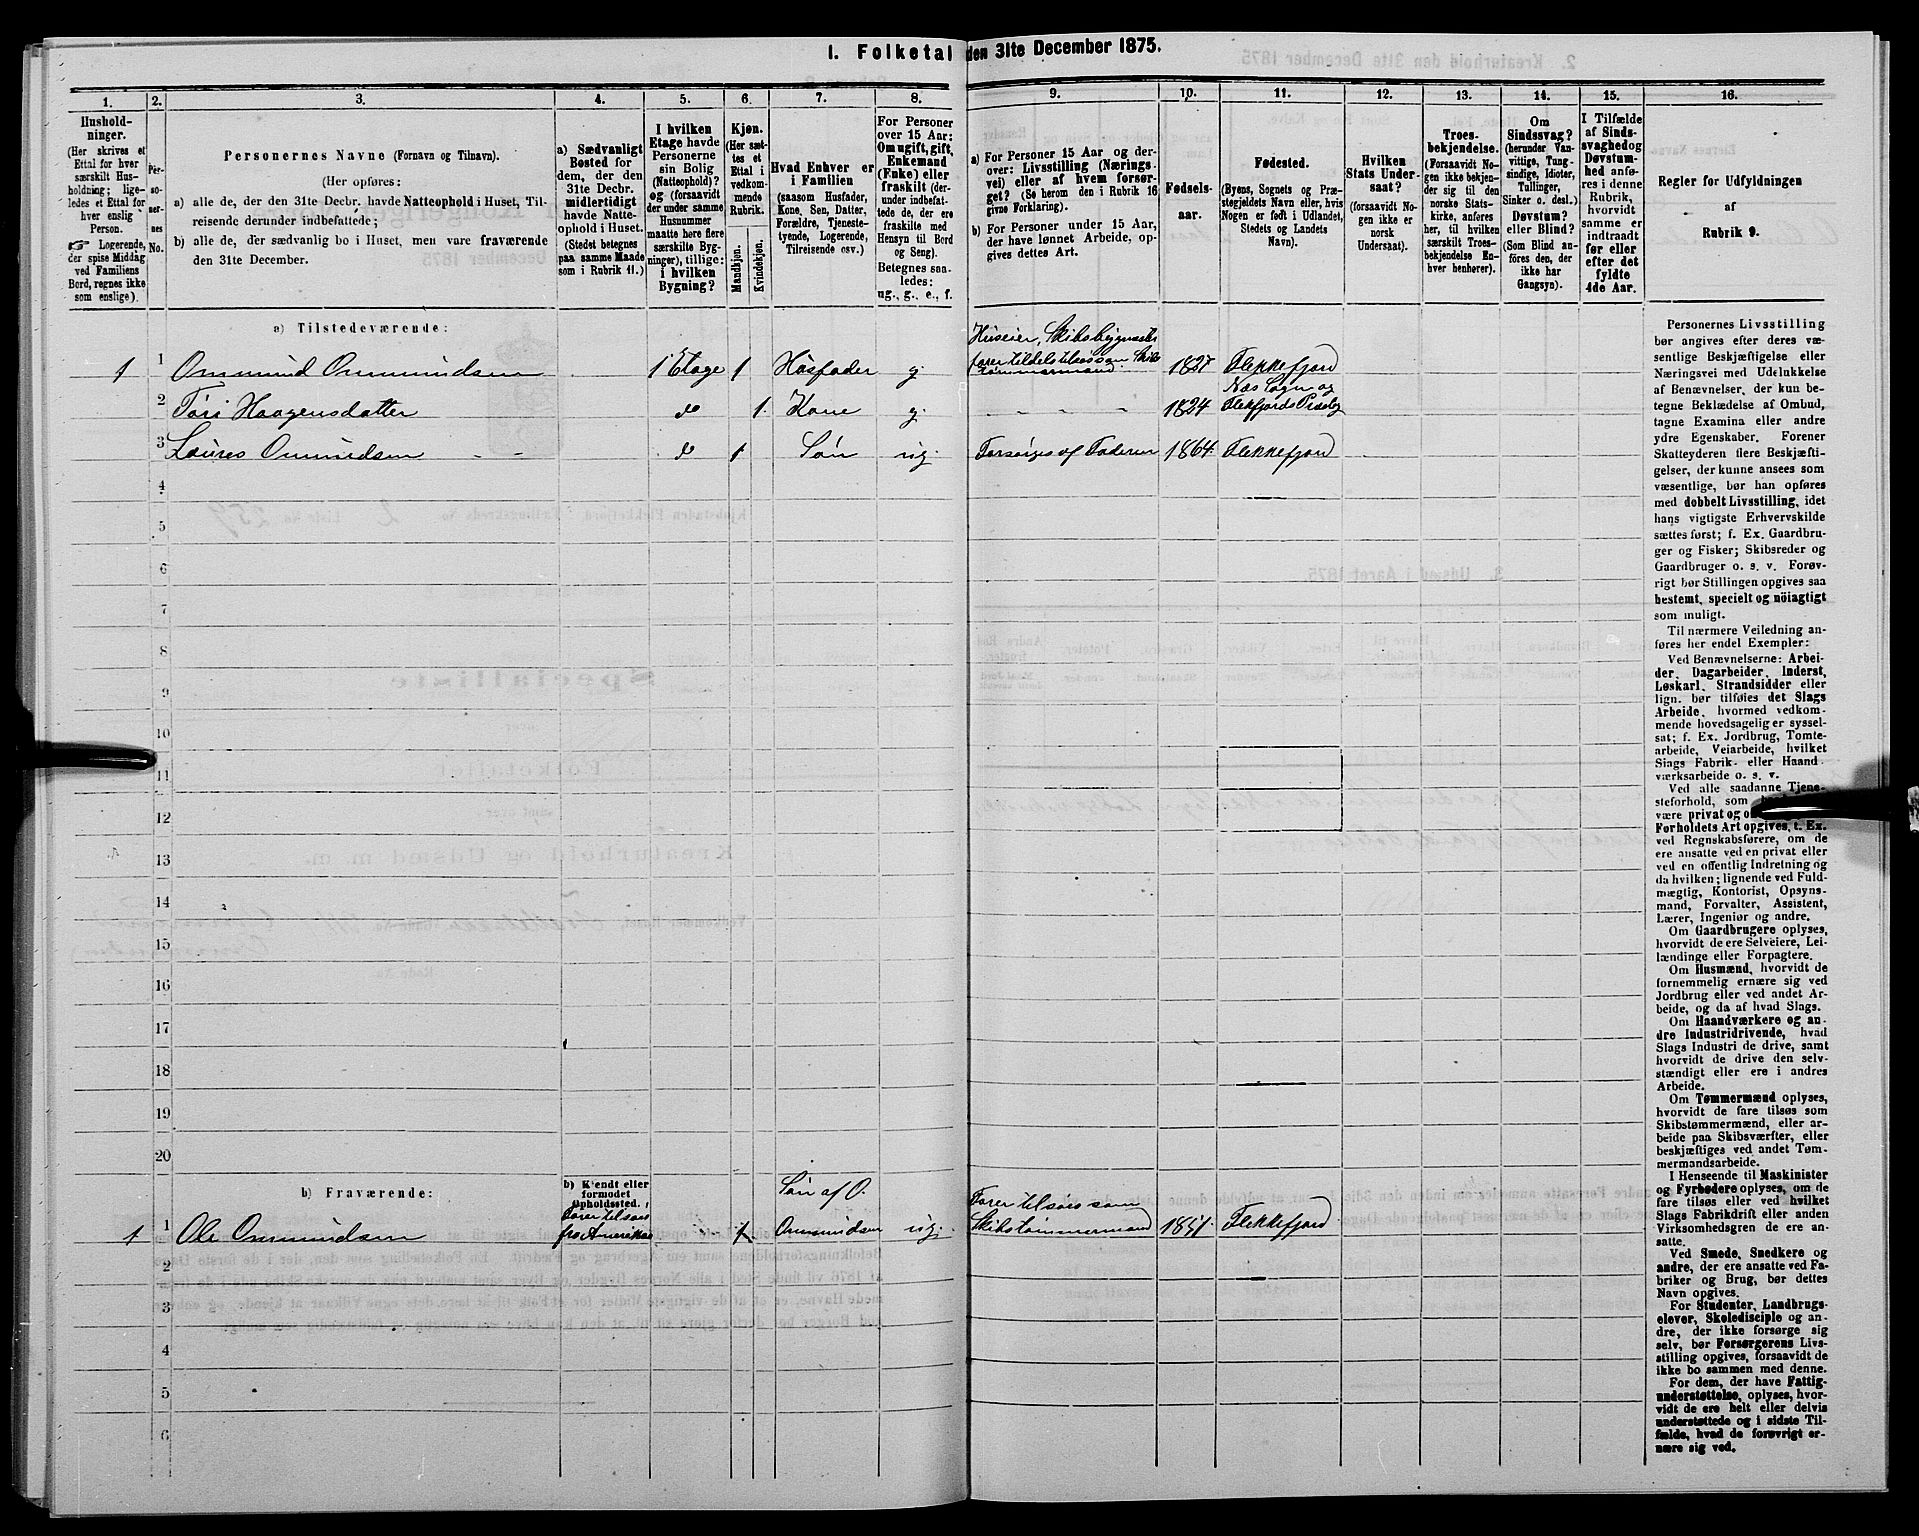 1. Folketal den 31te December 1875.
1.
Hushold-
ninger.
(Her skrives et
Ettal for hver
særskilt Hus-
holdning; lige-
ledes et Ettal for
hver enslig
Person.
☞ Logerende,
der spise Middag
ved Familiens
Bord, regnes ikke
som enslige).
2.
Per-
so-
ner-
nes
No.
3.
Personernes Navne (Fornavn og Tilnavn).
(Her opføres:
a) alle de, der den 31te Decbr. havde Natteophold i Huset, Til-
reisende derunder indbefattede;
b) alle de, der sædvanlig bo i Huset, men vare fraværende
den 31te December.
4.
a) Sædvanligt
Bosted for
dem, der den
31te Decbr.
midlertidigt
havde Natte-
ophold i Huset.
(Stedet betegnes
paa samme Maade
som i Rubrik 11.)
5.
I hvilken
Etage havde
Personerne
sin Bolig
(Natteophold)?
og (forsaavidt
der under samme
Husnummer
maatte høre flere
særskilte Byg-
ninger), tillige:
i hvilken
Bygning?
6.
Kjøn.
(Her sæt-
tes et
Ettal i
vedkom-
mende
Rubrik.
Mandkjøn.
Kvindekjøn.
7.
Hvad Enhver er
i Familien
(saasom Husfader,
Kone, Søn, Datter,
Forældre, Tjeneste-
tyende, Logerende,
Tilreisende osv.)
8.
For Personer
over 15 Aar:
Om ugift, gift,
Enkemand
(Enke) eller
fraskilt (der-
under indbefat-
tede de, der ere
fraskilte med
Hensyn til Bord
og Seng).
Betegnes saa-
ledes:
ug., g., e., f.
9.
a) For Personer 15 Aar og der-
over: Livsstilling (Nærings-
vei) eller af hvem forsør-
get? (Se herom den i Rubrik 16
givne Forklaring).
b) For Personer under 15 Aar,
der have lønnet Arbeide, op-
gives dettes Art.
10.
Fødsels-
aar.
11.
Fødested.
(Byens, Sognets og Præ-
stegjeldets Navn eller, hvis
Nogen er født i Udlandet,
Stedets og Landets
Navn).
12.
Hvilken
Stats Under-
saat?
(forsaavidt No-
gen ikke er
norsk
Undersaat).
13.
Troes-
bekjendelse.
(Forsaavidt No-
gen ikke bekjen-
der sig til den
norske Stats-
kirke, anføres
her, til hvilken
særskilt Troes-
bekjendelse En-
hver henhører).
14.
Om
Sindssvag?
(herunder Van-
vittige, Tung-
sindige, Idioter,
Tullinger,
Sinker o. desl.)
Døvstum?
eller Blind?
(Som Blind an-
føres den, der
ikke har
Gangsyn).
15.
I Tilfælde
af Sinds-
svaghed og
Døvstum-
hed anfø-
res i denne
Rubrik,
hvorvidt
samme er
indtraadt
før eller
efter det
fyldte
4de Aar.
16.
Regler for Udfyldningen
af
Rubrik 9.
a) Tilstedeværende:
Huseier, Skibsbygmester
1 1 Ommund Ommundsen 1 Etage 1 Husfader g. farer tildels tilsøs som Skibs- 1827 Flekkefjord
tømmermand.
Næs Sogn og
2 Tøri Haagensdatter do 1. Kone g. - - - - 1824 Flekfjords Præstegj
3 Laures Ommundsen - - do 1 Søn ug. Forsørges af Faderen 1864. Flekkefjord
4
5
6
7
8
9
10
11
12
13
14
15
16
17
18
19
20
b) Fraværende:
b) Kjendt eller
formodet
Opholdssted.
Søn af O.
1 1 Ole Ommundsen Farer tilsøs fra Amerika 1 Ommundsen ug. Farer tilsøs som Skibstømmermand 1851. Flekkefjord
2
3
4
5
6
Personernes Livsstilling
bør angives efter deres væ-
sentlige Beskjæftigelse eller
Næringsvei med Udelukkelse
af Benævnelser, der kun be-
tegne Beklædelse af Ombud,
tagne Examina eller andre
ydre Egenskaber. Forener
Skatteyderen flere Beskjæfti-
gelser, der kunne ansees som
væsentlige, bør han opføres
med dobbelt Livsstilling, idet
hans vigtigste Erhvervskilde
sættes først; f. Ex. Gaardbru-
ger og Fisker; Skibsreder og
Gaardbruger o. s. v. Forøv-
rigt bør Stillingen opgives saa
bestemt, specielt og nöiagtigt
som muligt.
Til nærmere Veiledning an-
føres her endel Exempler:
Ved Benævnelserne: Arbei-
der, Dagarbeider, Inderst,
Løskarl, Strandsidder eller
lign. bør tilføies det Slags
Arbeide, hvormed vedkom-
mende hovedsagelig er syssel-
sat; f. Ex. Jordbrug, Tomte-
arbeide, Veiarbeide, hvilket
Slags Fabrik- eller Haand-
værksarbeide o. s. v.
Ved alle saadanne Tjene-
steforhold, som
være privat og
Forholdets Art opgives, t. Ex.
ved Regnskabsførere, om de
ere ansatte ved en privat eller
ved en offentlig Indretning og
da hvilken; lignende ved Fuld-
mægtig, Kontorist, Opsyns-
mand, Forvalter, Assistent,
Lærer, Ingeniør og andre.
Om Gaardbrugere oplyses,
hvorvidt de ere Selveiere, Lei-
lændinge eller Forpagtere.
Om Husmænd, hvorvidt de
fornemmelig ernære sig ved
Jordbrug eller ved andet Ar-
beide, og da af hvad Slags.
Om Haandværkere og an-
dre Industridrivende, hvad
Slags Industri de drive, samt
hvorvidt de drive den selv-
stændigt eller ere i andres
Arbeide.
Om Tømmermænd oplyses,
hvorvidt de fare tilsøs som
Skibstømmermænd, eller ar-
beide paa Skibsværfter, eller
beskjæftiges ved andet Tøm-
mermandsarbeide.
I Henseende til Maskinister
og Fyrbødere oplyses, om de
fare tilsøs eller ved hvilket
Slags Fabrikdrift eller anden
Virksomhed de ere an-
satte.
Ved Smede, Snedkere og
andre, der ere ansatte ved Fa-
briker og Brug, bør dettes
Navn opgives.
For Studenter, Landbrugs-
elever, Skoledisciple og an-
dre, der ikke forsørge sig
selv, bør Forsørgerens Livs-
stilling opgives, forsaavidt de
ikke bo sammen med denne.
For dem, der have Fattig-
understøttelse, oplyses, hvor-
vidt de ere helt eller delvis
understøttede og i sidste Til-
fælde, hvad de forøvrigt er-
nære sig ved.